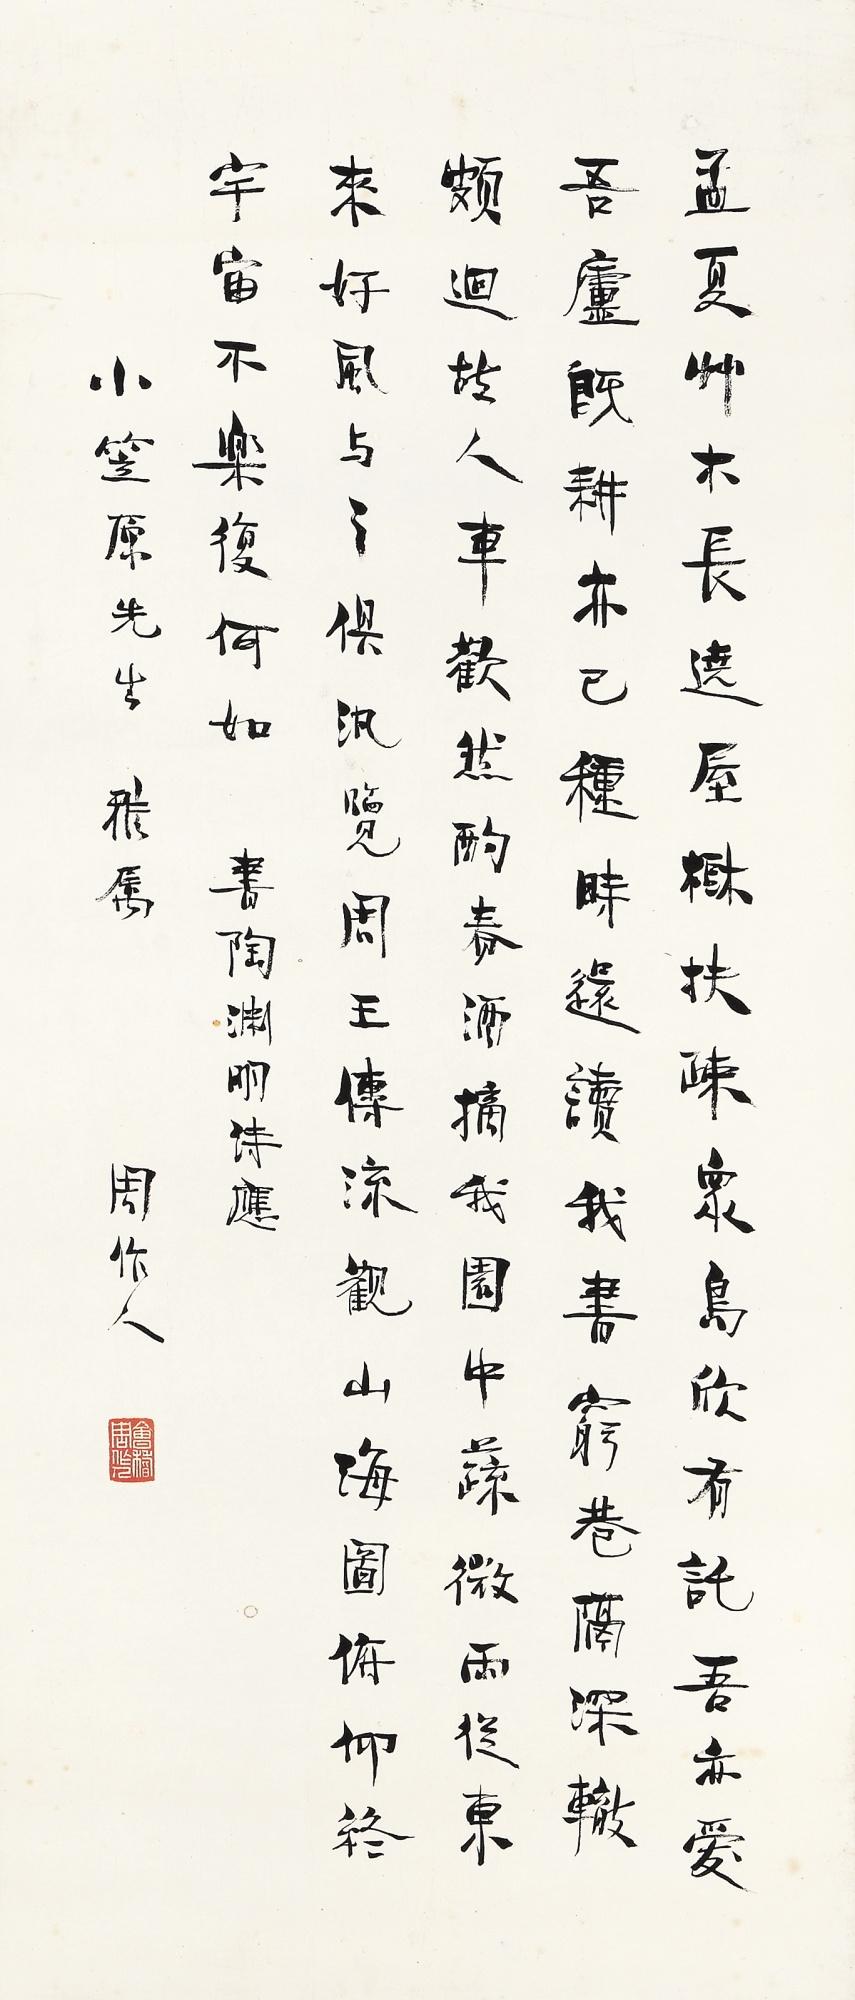 孟夏艸木長遶屋樹扶疎眾鳥欣有託吾亦愛
吾廬既耕亦已種時還讀我書窮巷隔深轍
頗迴故人車歡然酌春酒摘我園中蔬微雨從東
來好風与之俱汎覽周王傳流觀山海圖俯仰終
宇宙不樂復何如 書陶淵明詩應
小笠原先生 雅屬
周作人
會稽周作人